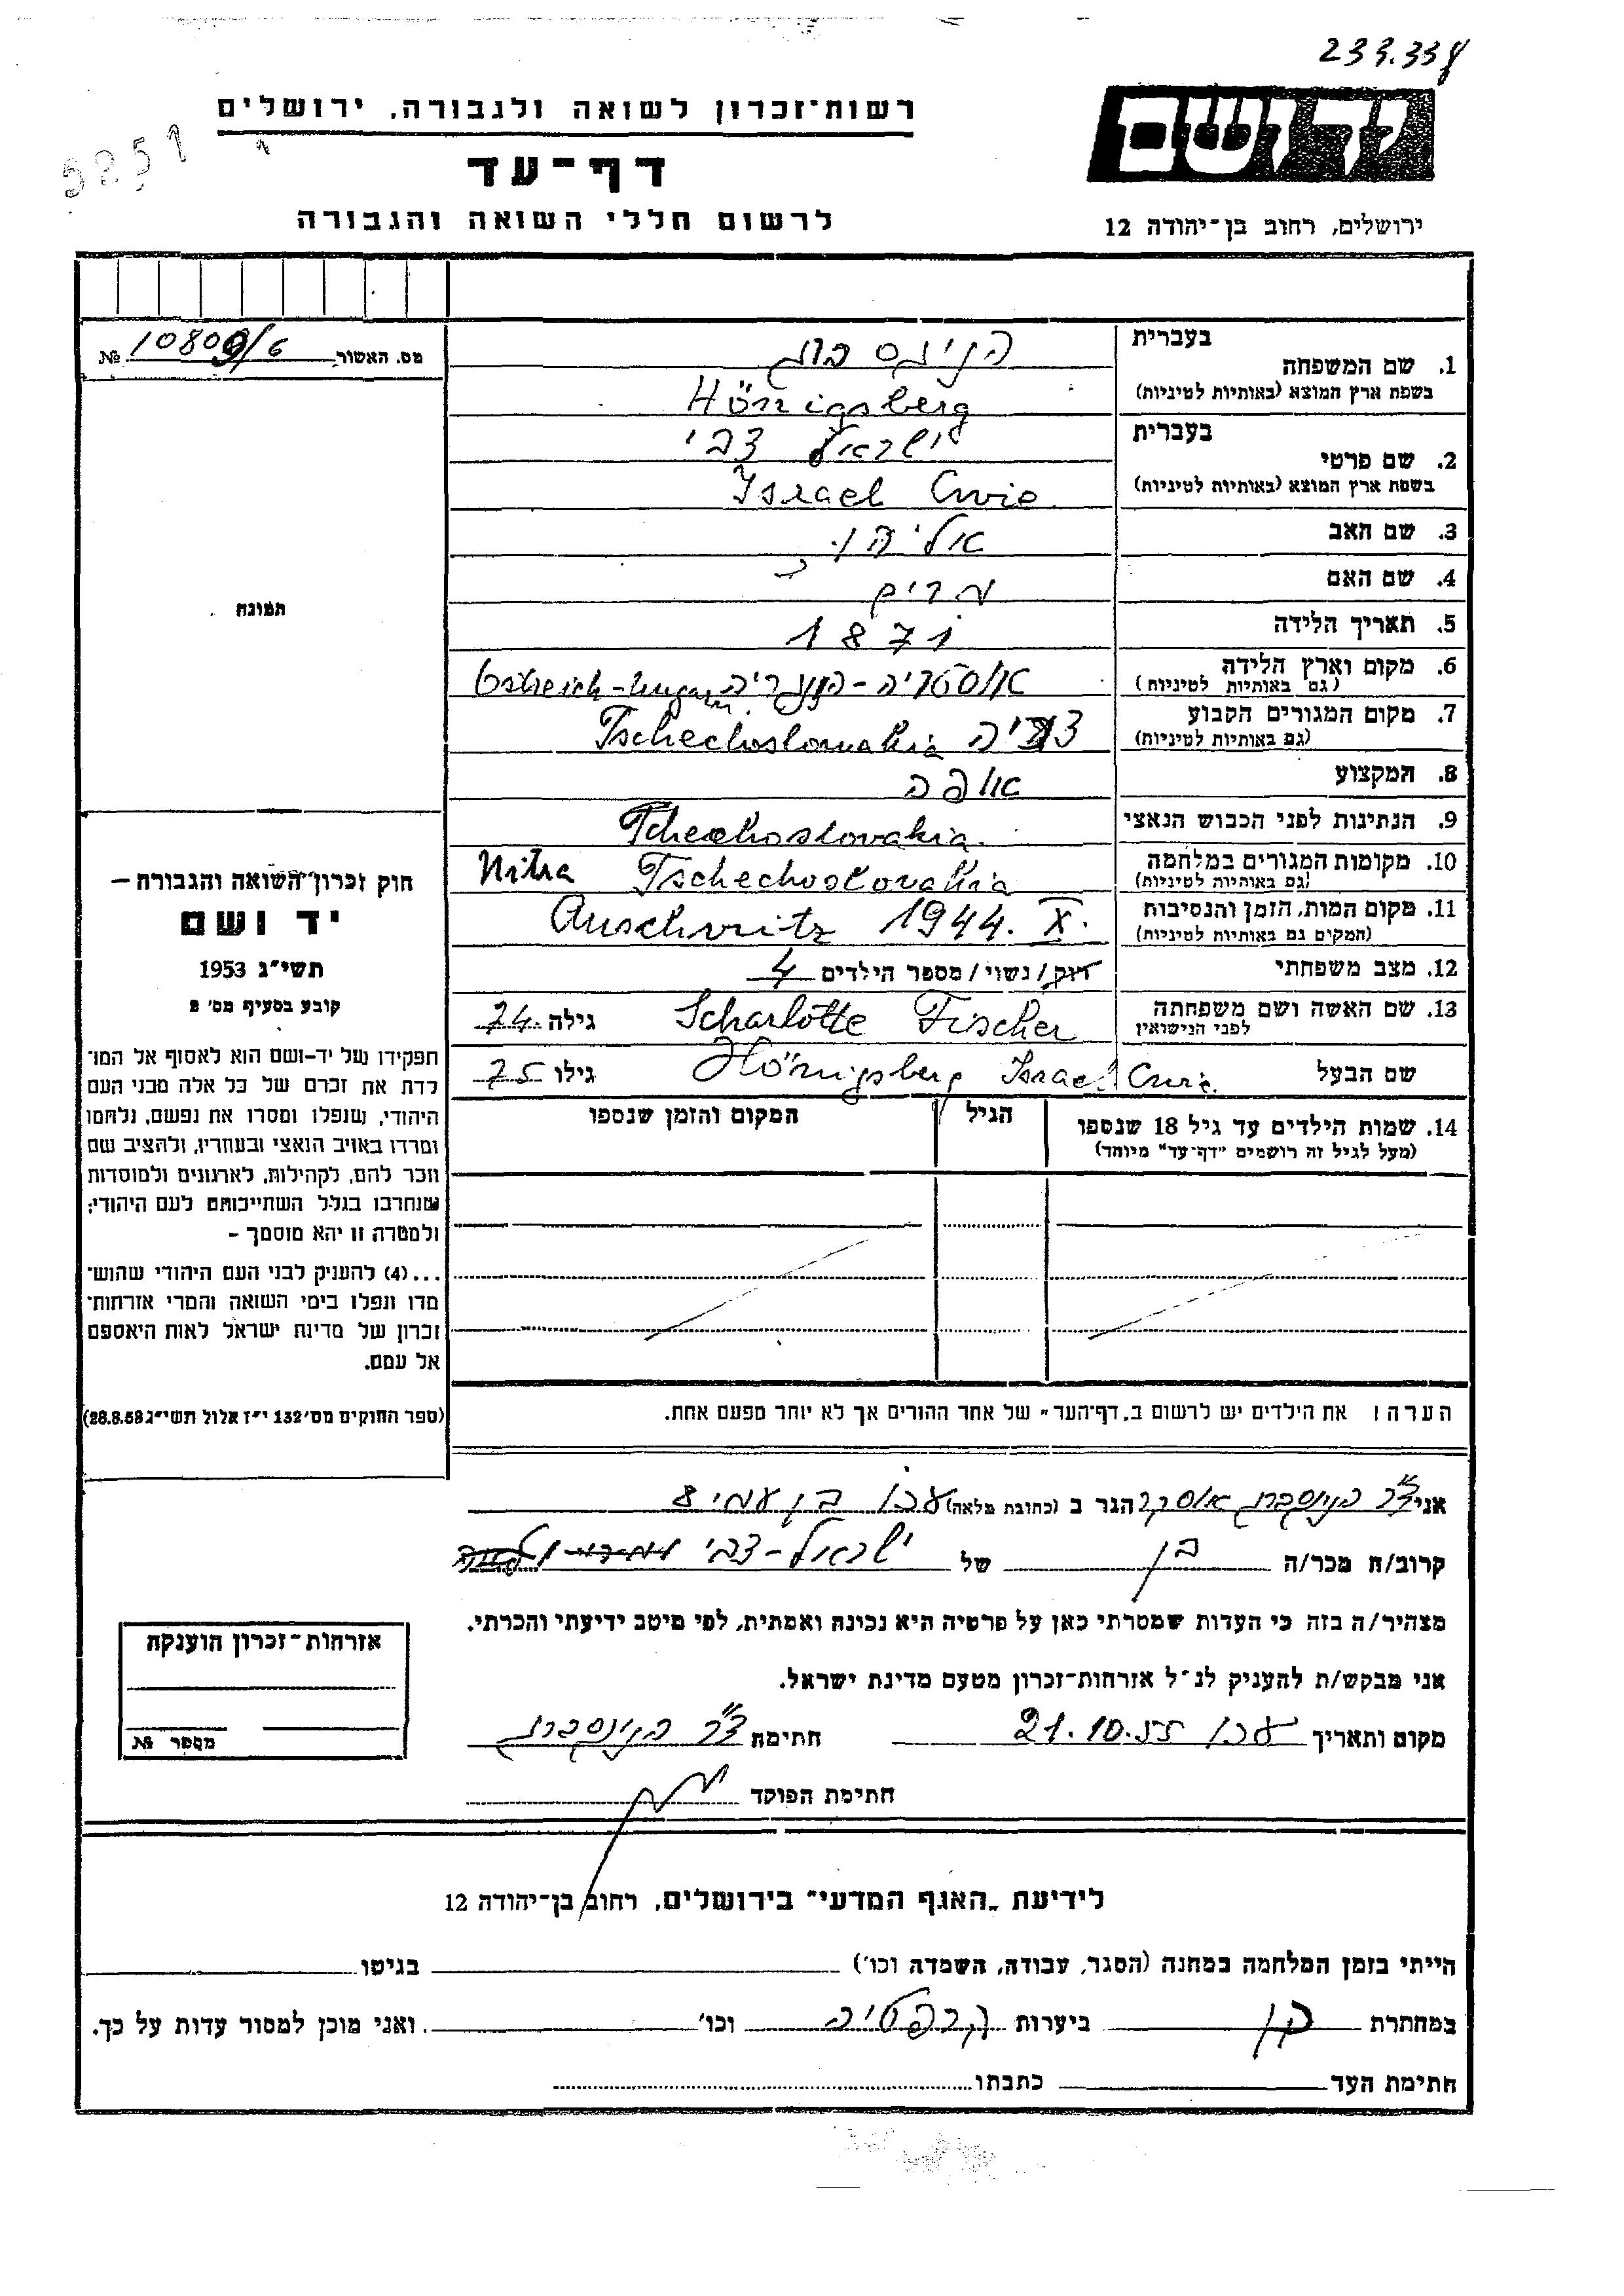 233.338
5251
ידושם
רשות־זכרון לשואה ולגבורה, ירושלים
דף־עד
לרשום חללי השואה והגבורה
ירושלים, רחוב בן־יהודה 12
מס. האשור 10809/6 №
תמונה
בעברית
1. שם המשפחה הניגסברג
בשפת ארץ המוצא (באותיות לטיניות) Hönigsberg
בעברית
2. שם פרטי ישראל צבי
בשפת ארץ המוצא (באותיות לטיניות) Israel Cwie
3. שם האב אליהו
4. שם האם מרים
5. תאריך הלידה 1871
6. מקום וארץ הלידה אוסטריה-הונגריה
(גם באותיות לטיניות)
7. מקום המגורים הקבוע Tschechoslowakia
(גם באותיות לטיניות)
8. המקצוע אופה
9. הנתינות לפני הכבוש הנאצי Tchechoslovakia
10. מקומות המגורים במלחמה Tschechoslovakia Nitra
(גם באותיות לטיניות)
11. מקום המות, הזמן והנסיבות Auschwitz 1944. X.
(המקום גם באותיות לטיניות)
12. מצב משפחתי רוק/נשוי/מספר הילדים 4
13. שם האשה ושם משפחתה לפני הנישואין Scharlotte Fischer גילה 74
שם הבעל Hönigsberg Israel Cwie גילו 75
14. שמות הילדים עד גיל 18 שנספו הגיל המקום והזמן שנספו
(מעל לגיל זה רושמים "דף־עד" מיוחד)
הערה: את הילדים יש לרשום ב„דף־העד" של אחד ההורים אך לא יותר מפעם אחת.
חוק זכרון־השואה והגבורה —
יד ושם
תשי״ג 1953
קובע בסעיף מס׳ 2
תפקידו של יד־ושם הוא לאסוף אל המו־
לדת את זכרם של כל אלה מבני העם
היהודי, שנפלו ומסרו את נפשם, נלחמו
ומרדו באויב הנאצי ובעוזריו, ולהציב שם
וזכר להם, לקהילות, לארגונים ולמוסדות
שנחרבו בגלל השתייכותם לעם היהודי;
ולמטרה זו יהא מוסמך –
...(4) להעניק לבני העם היהודי שהוש־
מדו ונפלו בימי השואה והמרי אזרחות־
זכרון של מדינת ישראל לאות היאספם
אל עמם.
(ספר החוקים מס׳ 132 י״ז אלול תשי״ג 28.8.53)
אני ד"ר הניגסברג אוסקר הגר ב (כתובת מלאה) עכו בן עמי 8
קרוב/ה מכר/ה בן של ישראל-צבי
מצהיר/ה בזה כי העדות שמסרתי כאן על פרטיה היא נכונה ואמתית, לפי מיטב ידיעתי והכרתי.
אני מבקש/ת להעניק לנ״ל אזרחות־זכרון מטעם מדינת ישראל.
מקום ותאריך עכו 21.10.55 חתימה ד"ר הניגסברג
חתימת הפוקד
אזרחות־זכרון הוענקה
מספר №
לידיעת „האגף המדעי" בירושלים, רחוב בן־יהודה 12
הייתי בזמן המלחמה במחנה (הסגר, עבודה, השמדה וכו׳) בגיטו
במחתרת כן ביערות וכו׳ ואני מוכן למסור עדות על כך.
חתימת העד כתבתו